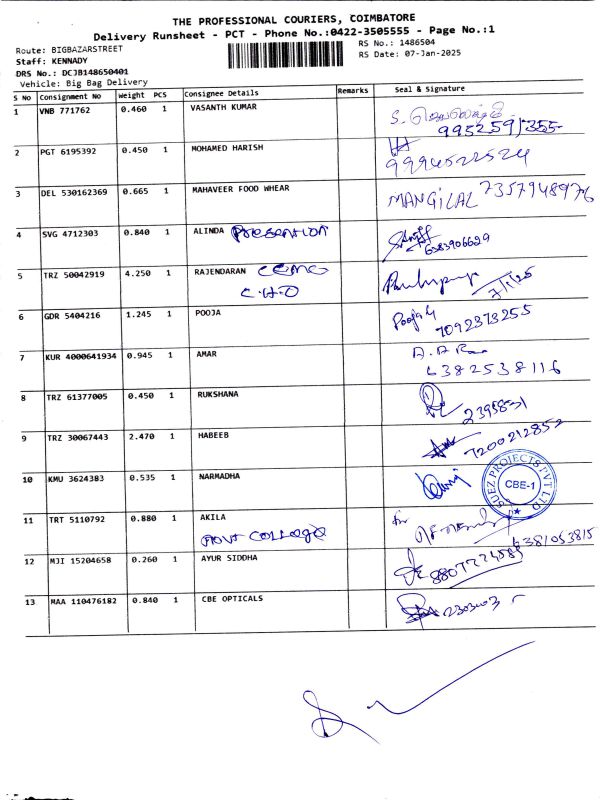 THE PROFESSIONAL COURIERS, COIMBATORE
Delivery Runsheet - PCT - Phone No.:0422-3505555 - Page No.:1
Route: BIGBAZARSTREET
RS No.: 1486504
Staff: KENNADY
RS Date: 07-Jan-2025
DRS No.: DCJB148650401
Vehicle: Big Bag Delivery
S No Consignment No Weight PCS Consignee Details Remarks Seal & Signature
1 VNB 771762 0.460 1 VASANTH KUMAR
2 PGT 6195392 0.450 1 MOHAMED HARISH 9994522524
3 DEL 530162369 0.665 1 MAHAVEER FOOD WHEAR MANGILAL
4 SVG 4712303 0.840 1 ALINDA
6383906629
5 TRZ 50042919 4.250 1 RAJENDARAN
7/1/25
6 GDR 5404216 1.245 1 POOJA Pooja G
7092373255
7 KUR 4000641934 0.945 1 AMAR
6382538116
8 TRZ 61377005 0.450 1 RUKSHANA
2395831
9 TRZ 30067443 2.470 1 HABEEB
7200212852
10 KMU 3624383 0.535 1 NARMADHA
SUEZ PROJECTS PVT LTD
CBE-1
11 TRT 5110792 0.880 1 AKILA for
Govt College 6381053815
12 MJI 15204658 0.260 1 AYUR SIDDHA
13 MAA 110476182 0.840 1 CBE OPTICALS